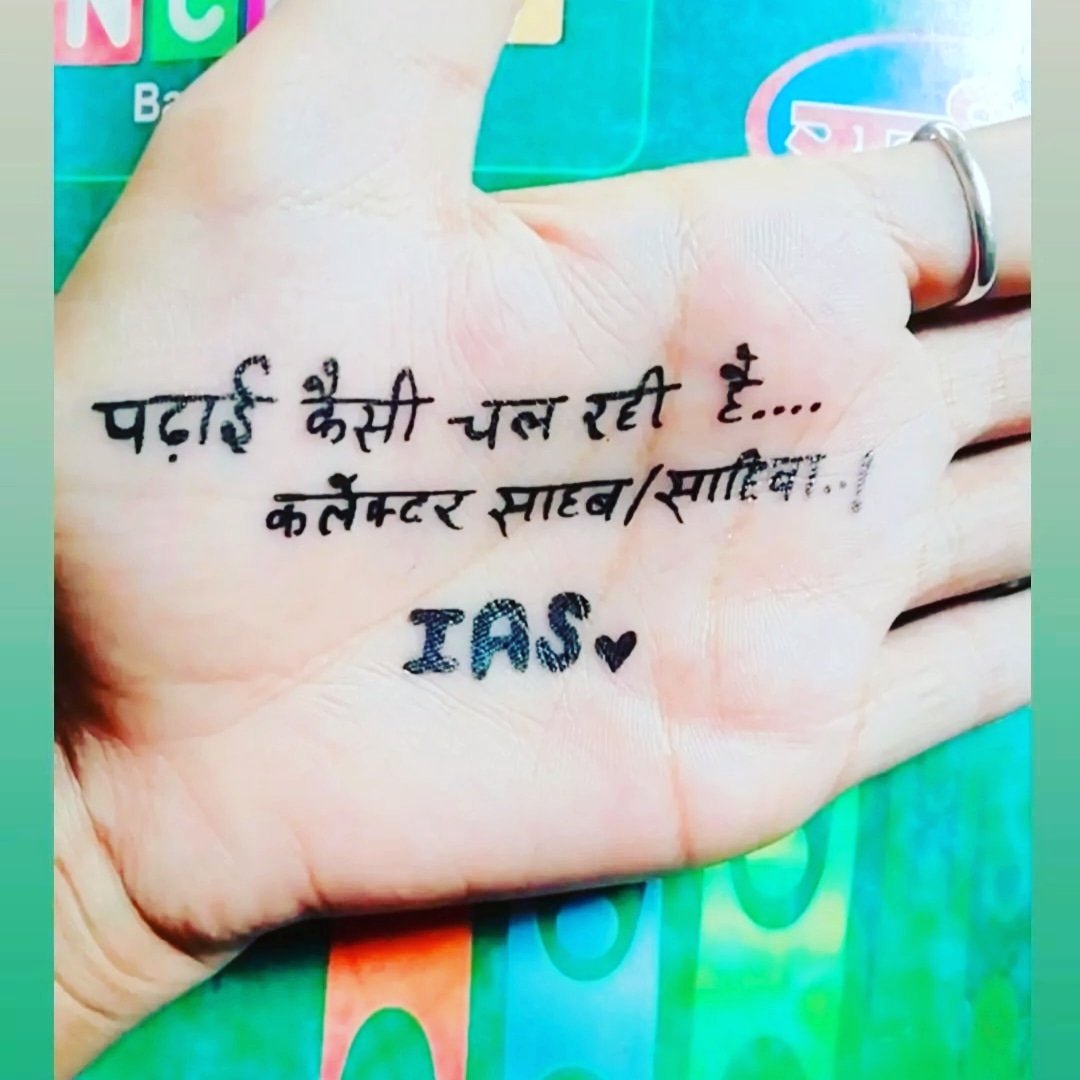 NC
पढ़ाई कैसी चल रही है....
कलेक्टर साहब/साहिबा..!
IAS♥